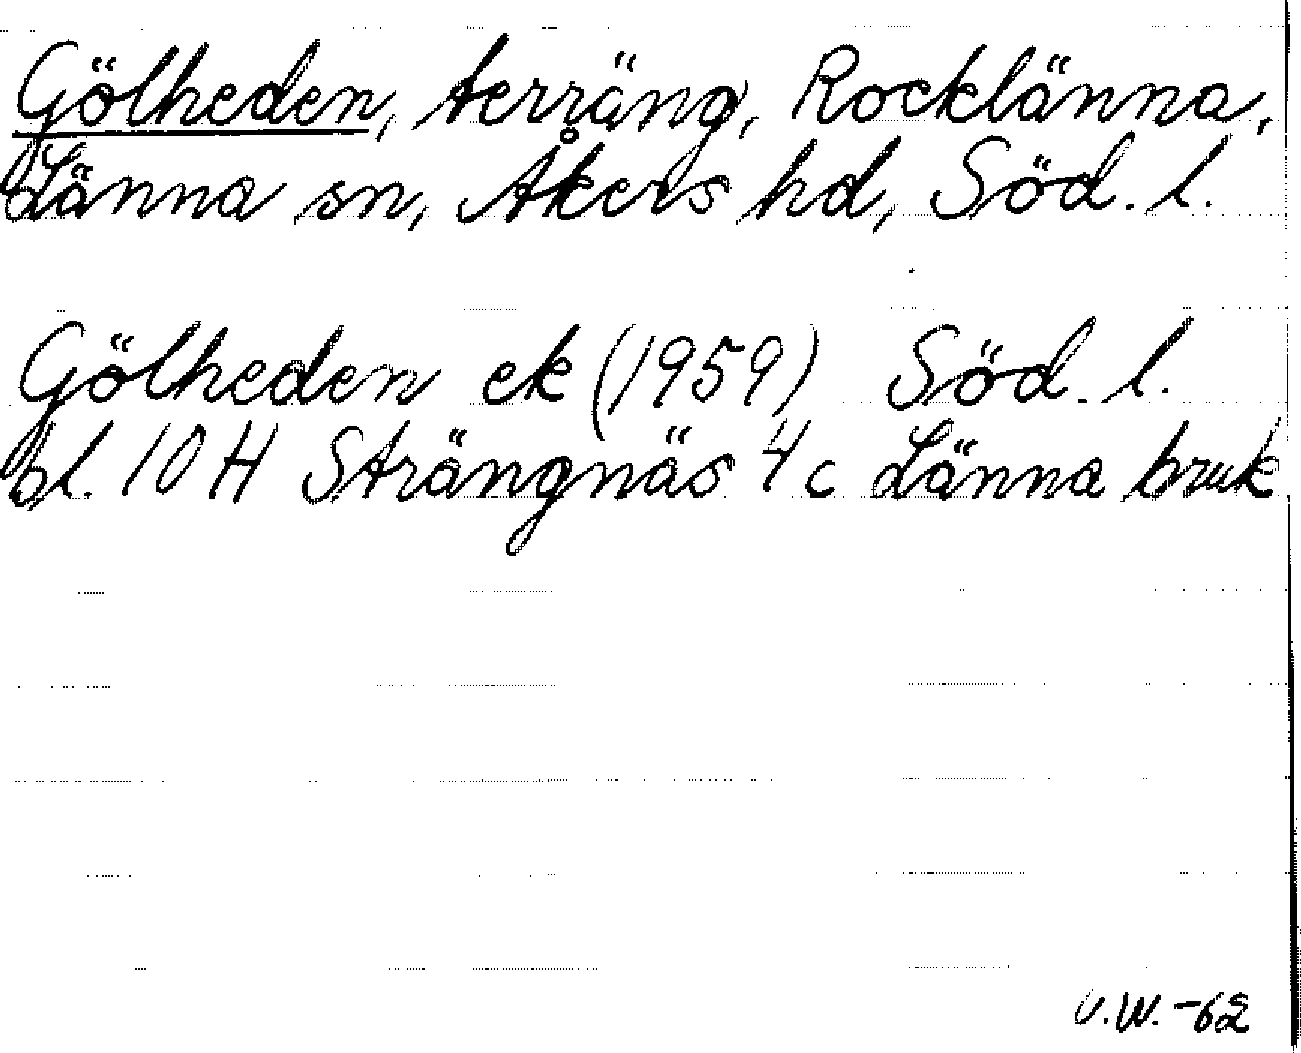 Gölheden, terräng, Rocklänna,
Länna sn, Åkers hd, Söd. l.
Gölheden ek (1959) Söd. l.
bl. 10 H Strängnäs 4 c Länna bruk
U.W. -62